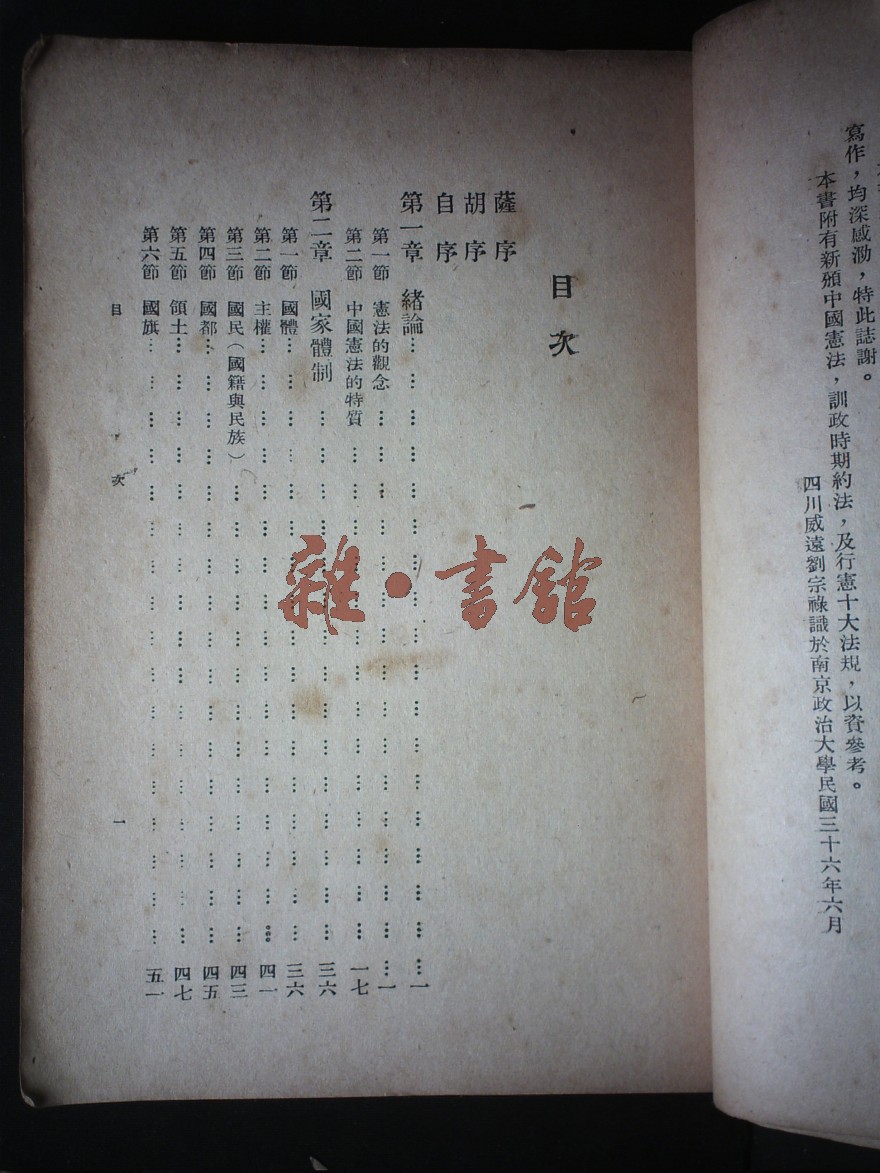 寫作，均深感泐，特此誌謝。
本書附有新頒中國憲法，訓政時期約法，及行憲十大法規，以資參考。
四川威遠劉宗祿識於南京政治大學民國三十六年六月
目次
薩序
胡序
自序
第一章 緒論………………………………一
第一節 憲法的觀念………………………………一
第二節 中國憲法的特質………………………………一七
第二章 國家體制………………………………三六
第一節 國體………………………………三六
第二節 主權………………………………四一
第三節 國民（國籍與民族）………………………………四三
第四節 國都………………………………四五
第五節 領土………………………………四七
第六節 國旗………………………………五一
目次 一
雜·書館